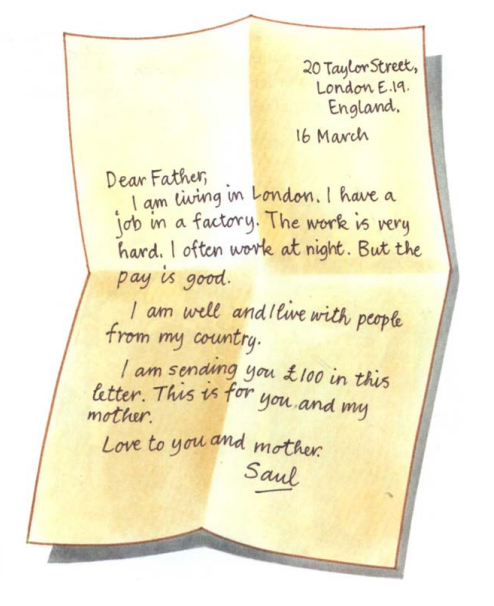 20 Taylor Street,
London E.19.
England.
16 March
Dear Father,
I am living in London. I have a
job in a factory. The work is very
hard. I often work at night. But the
pay is good.
I am well and I live with people
from my country.
I am sending you £100 in this
letter. This is for you and my
mother.
Love to you and mother.
Saul